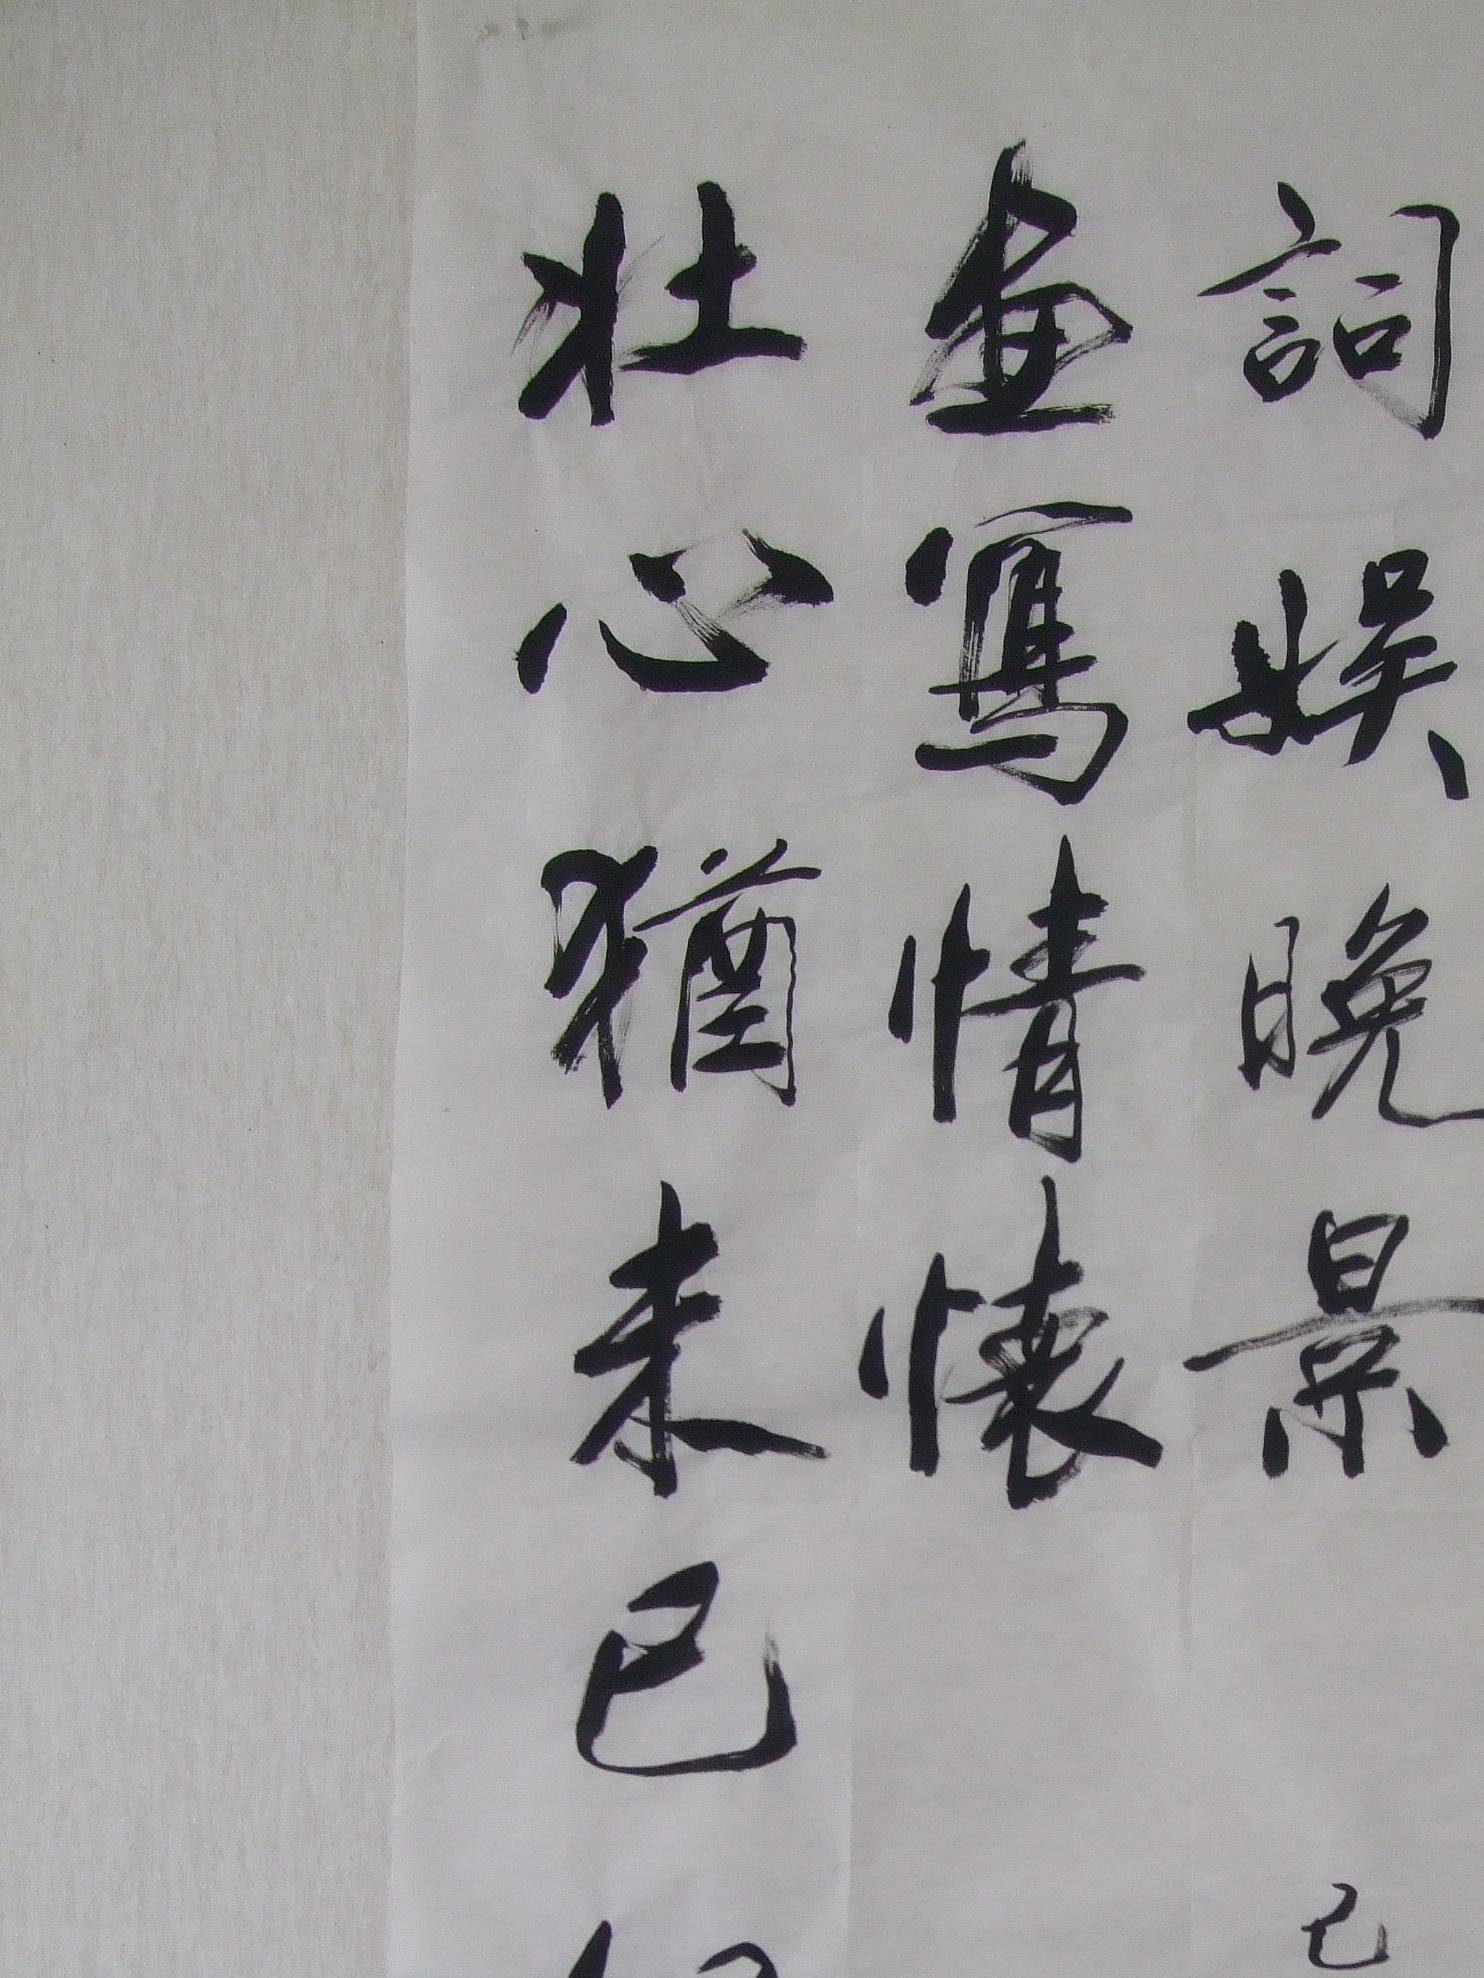 壯心猶未已
畫寫情懷
詞娛晚景
己